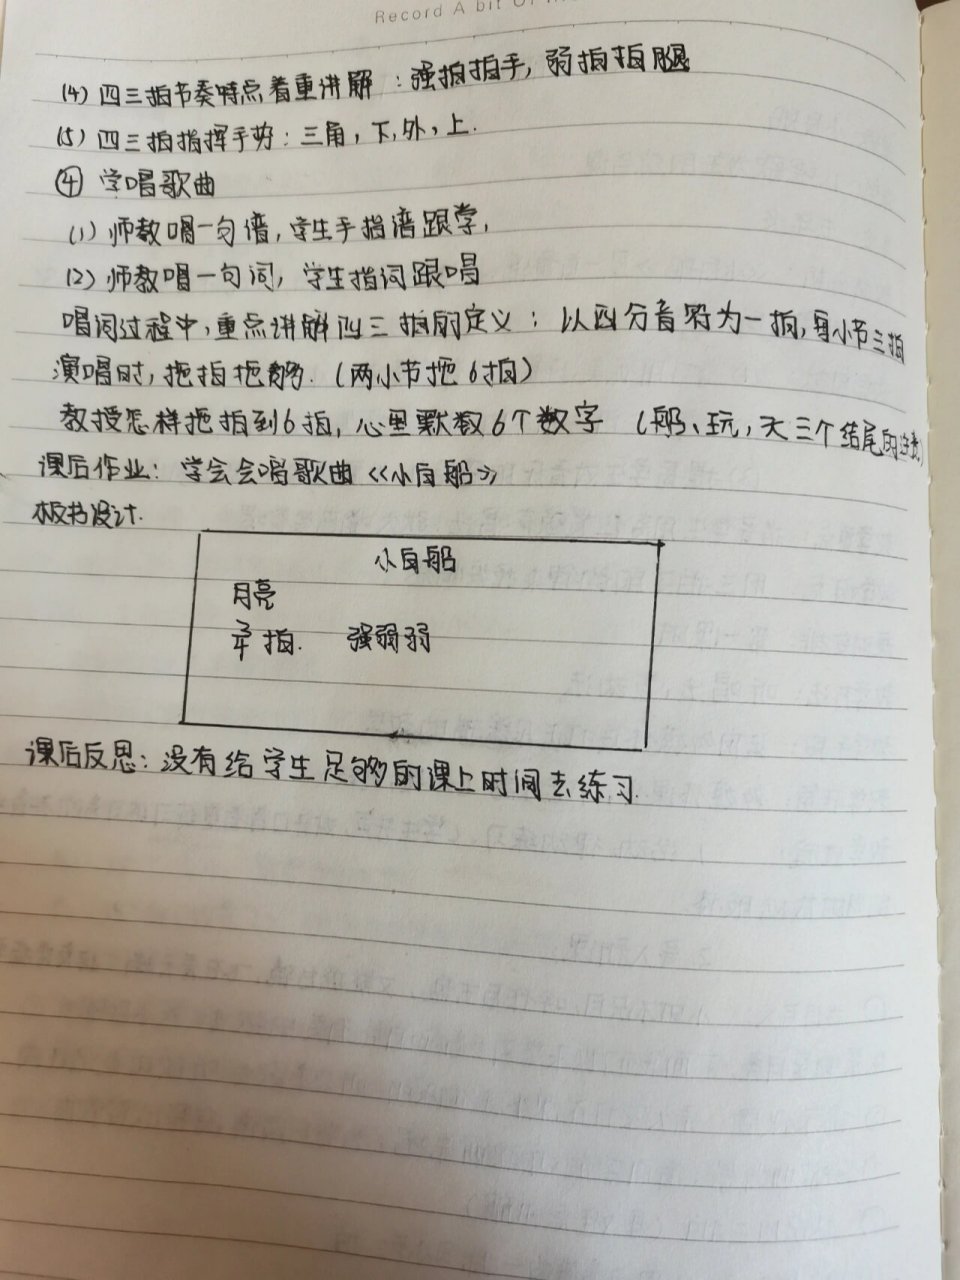 Record A bit Of
(4) 四三拍节奏特点着重讲解：强拍拍手，弱拍拍腿
(5) 四三拍指挥手势：三角，下，外，上.
④ 学唱歌曲
(1) 师教唱一句谱，学生手指谱跟学，
(2) 师教唱一句词，学生指词跟唱
唱词过程中，重点讲解四三拍的定义：以四分音符为一拍，每小节三拍
演唱时，把拍把够.（两小节把6拍）
教授怎样把拍到6拍，心里默数6个数字（船、玩，天三个结尾的
课后作业：学会会唱歌曲《小白船》
板书设计.
小白船
月亮
3/4拍. 强弱弱
课后反思：没有给学生足够的课上时间去练习.